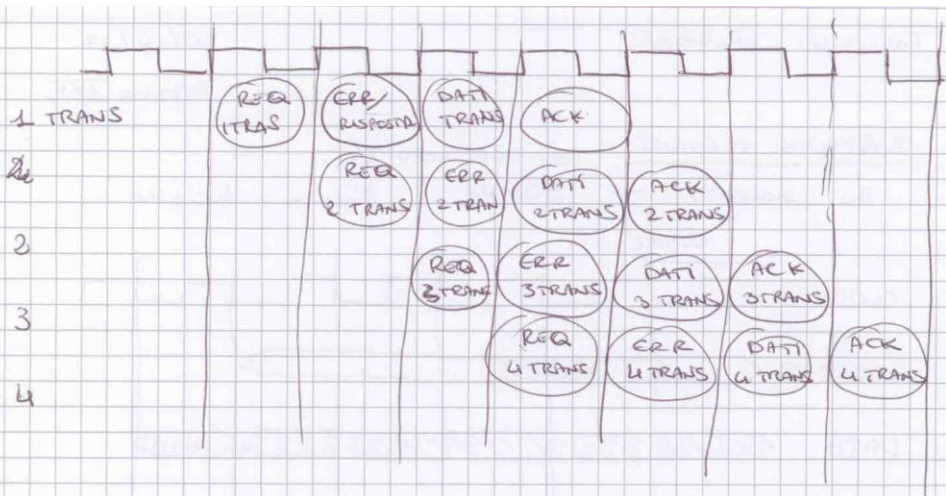 1 TRANS
REQ
1TRAS
ERR/
RISPOSTA
DATI
TRANS
ACK
REQ
2 TRANS
ERR
2 TRAN
DATI
2 TRANS
ACK
2 TRANS
2
REQ
3 TRANS
ERR
3 TRANS
DATI
3 TRANS
ACK
3 TRANS
3
REQ
4 TRANS
ERR
4 TRANS
DATI
4 TRANS
ACK
4 TRANS
4